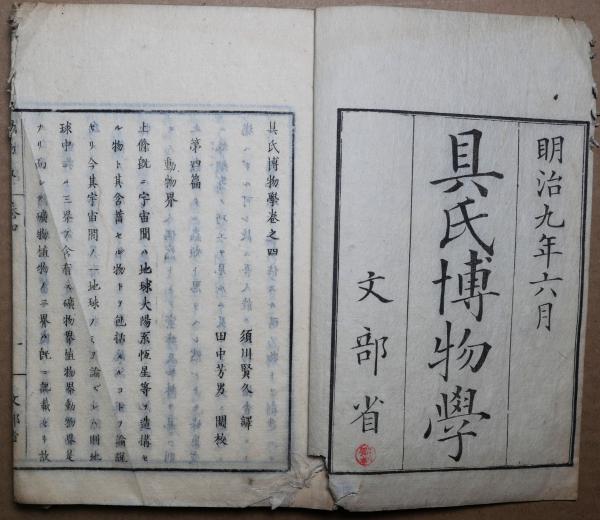 明治九年六月
具氏博物學
文部省
具氏博物學卷之四
須川賢久 譯
田中芳男 閲校
第四篇
動物界
上條既ニ宇宙間ノ地球大陽系恆星等ヲ造構セ
ル物ト其含蓄セル物トヲ包括スルコトヲ論説
セリ今其宇宙間ノ一地球ノミヲ論ゼンニ則地
球中ニハ三界ヲ含有ス礦物界植物界動物界是
ナリ而シテ礦物植物ノ二界ハ既ニ記載セリ故
一
文部省